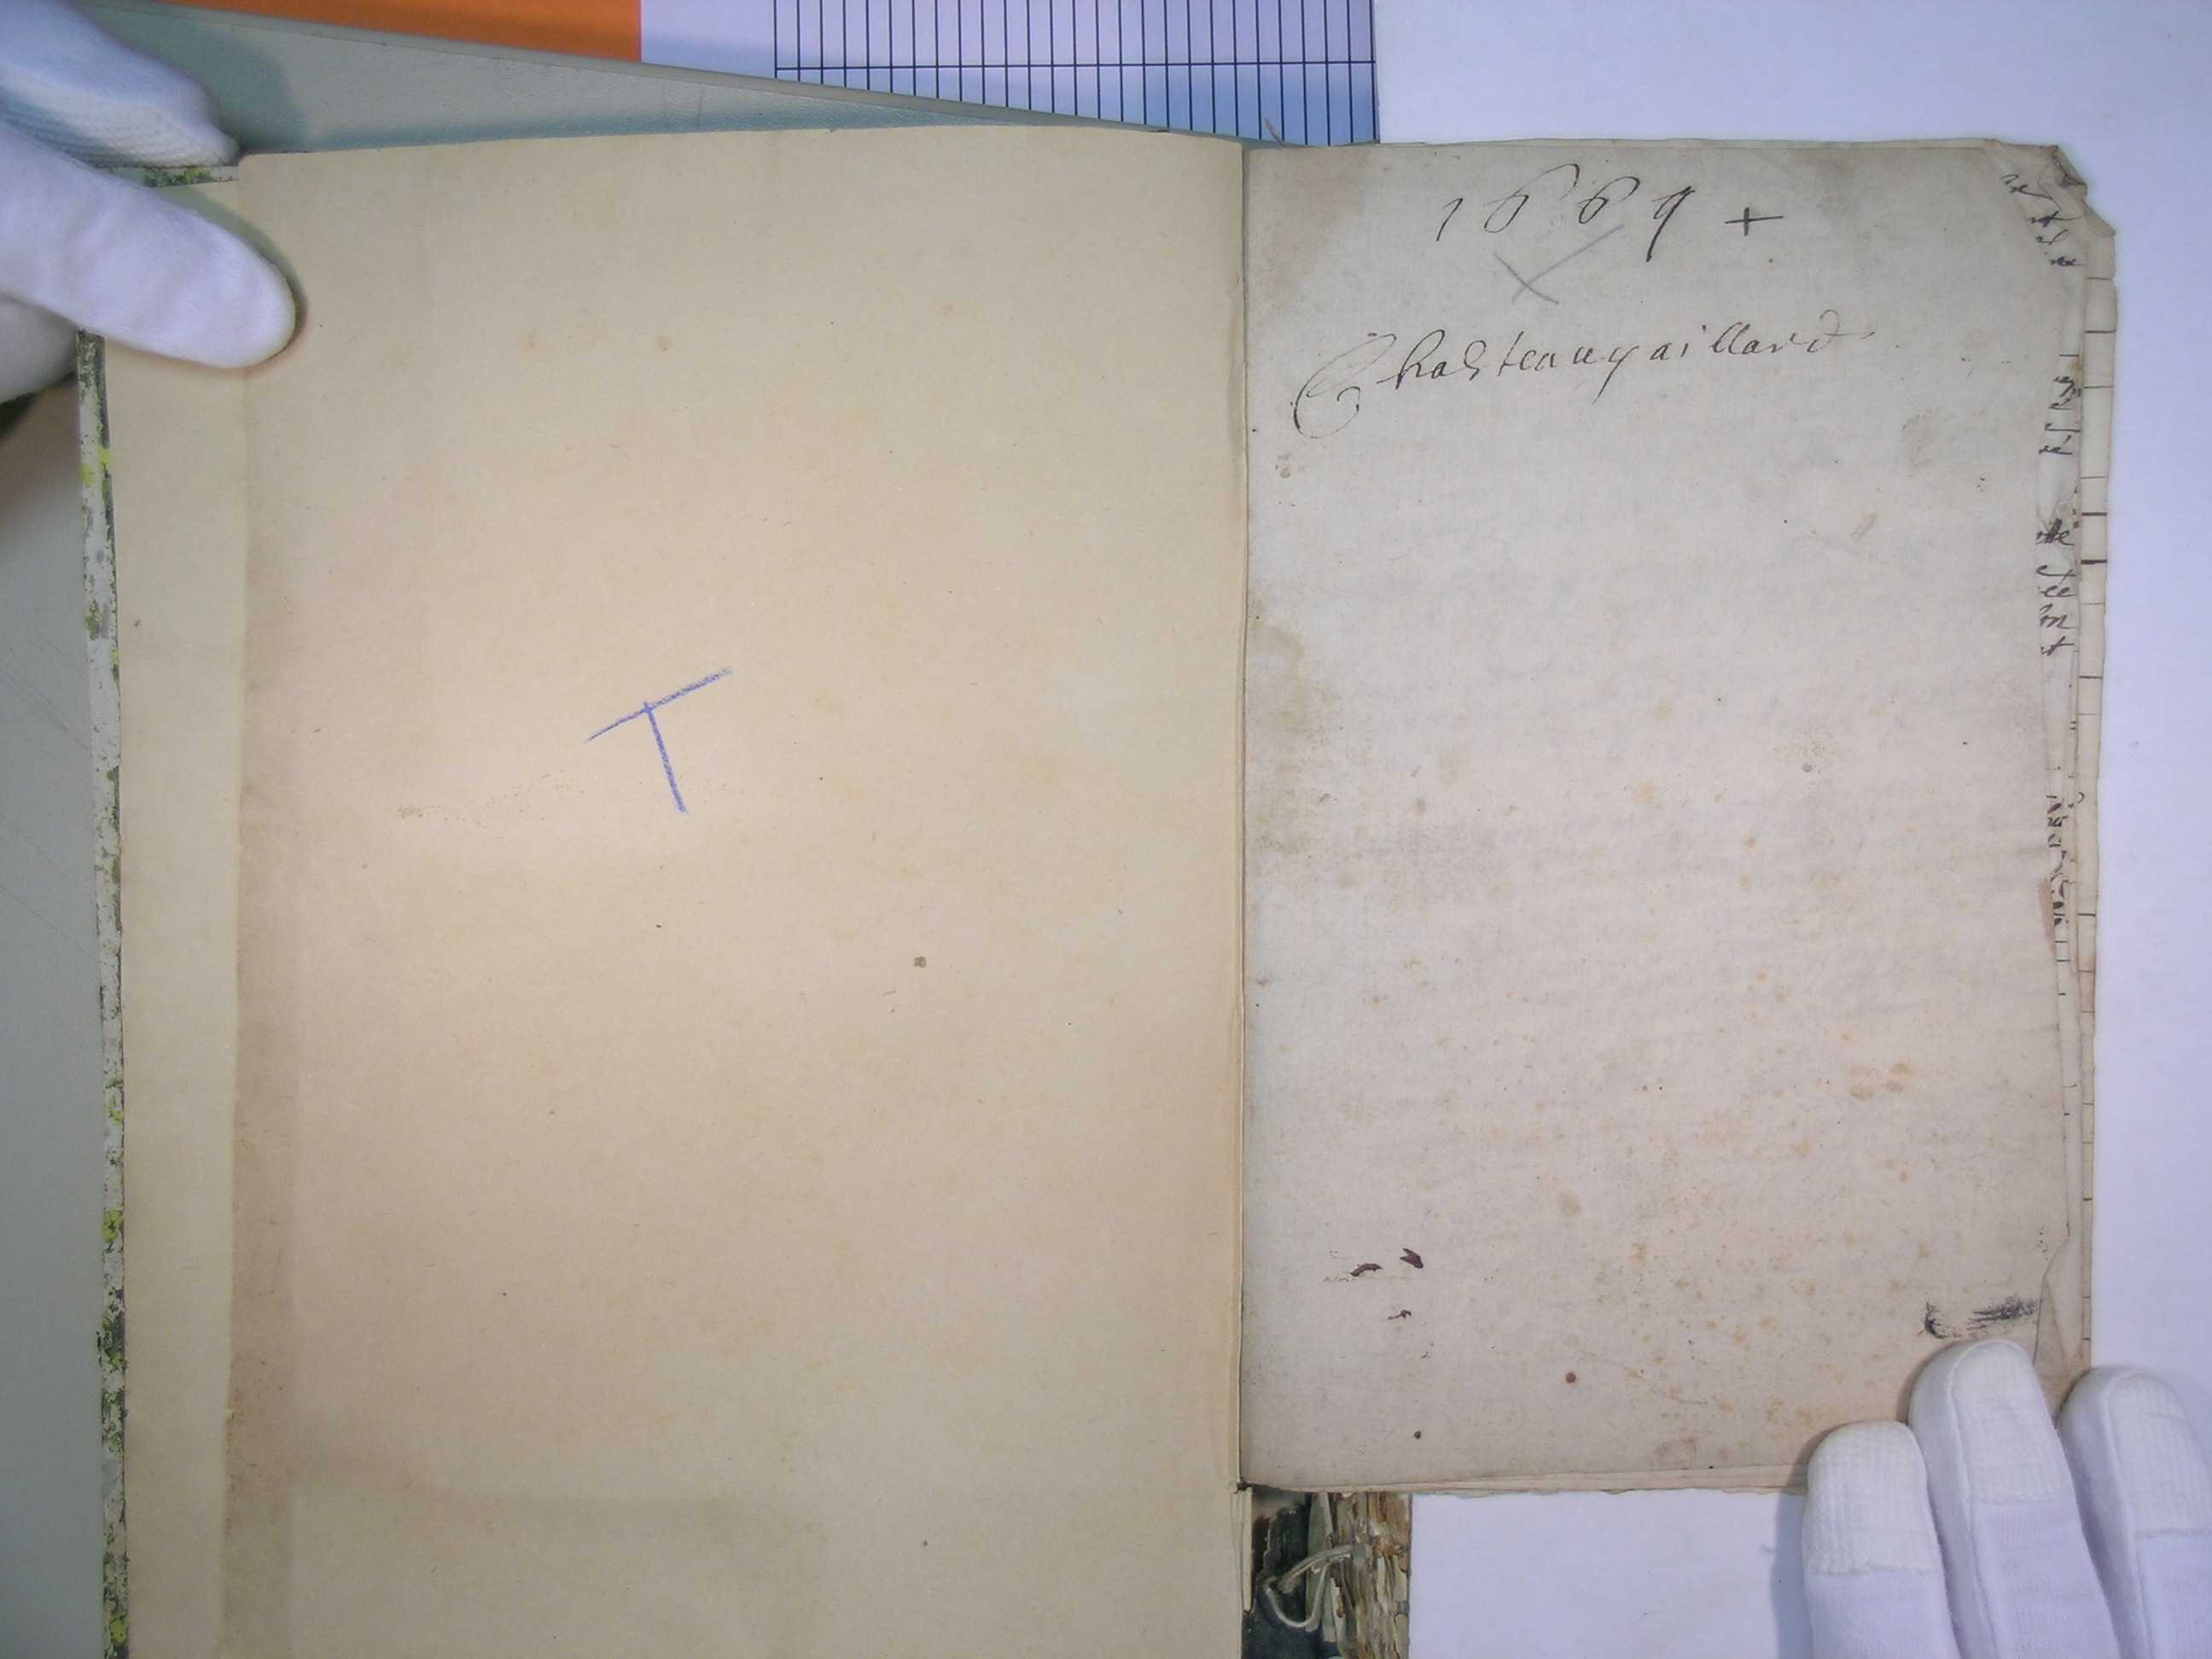 T
1669 +
Chasteaugaillard